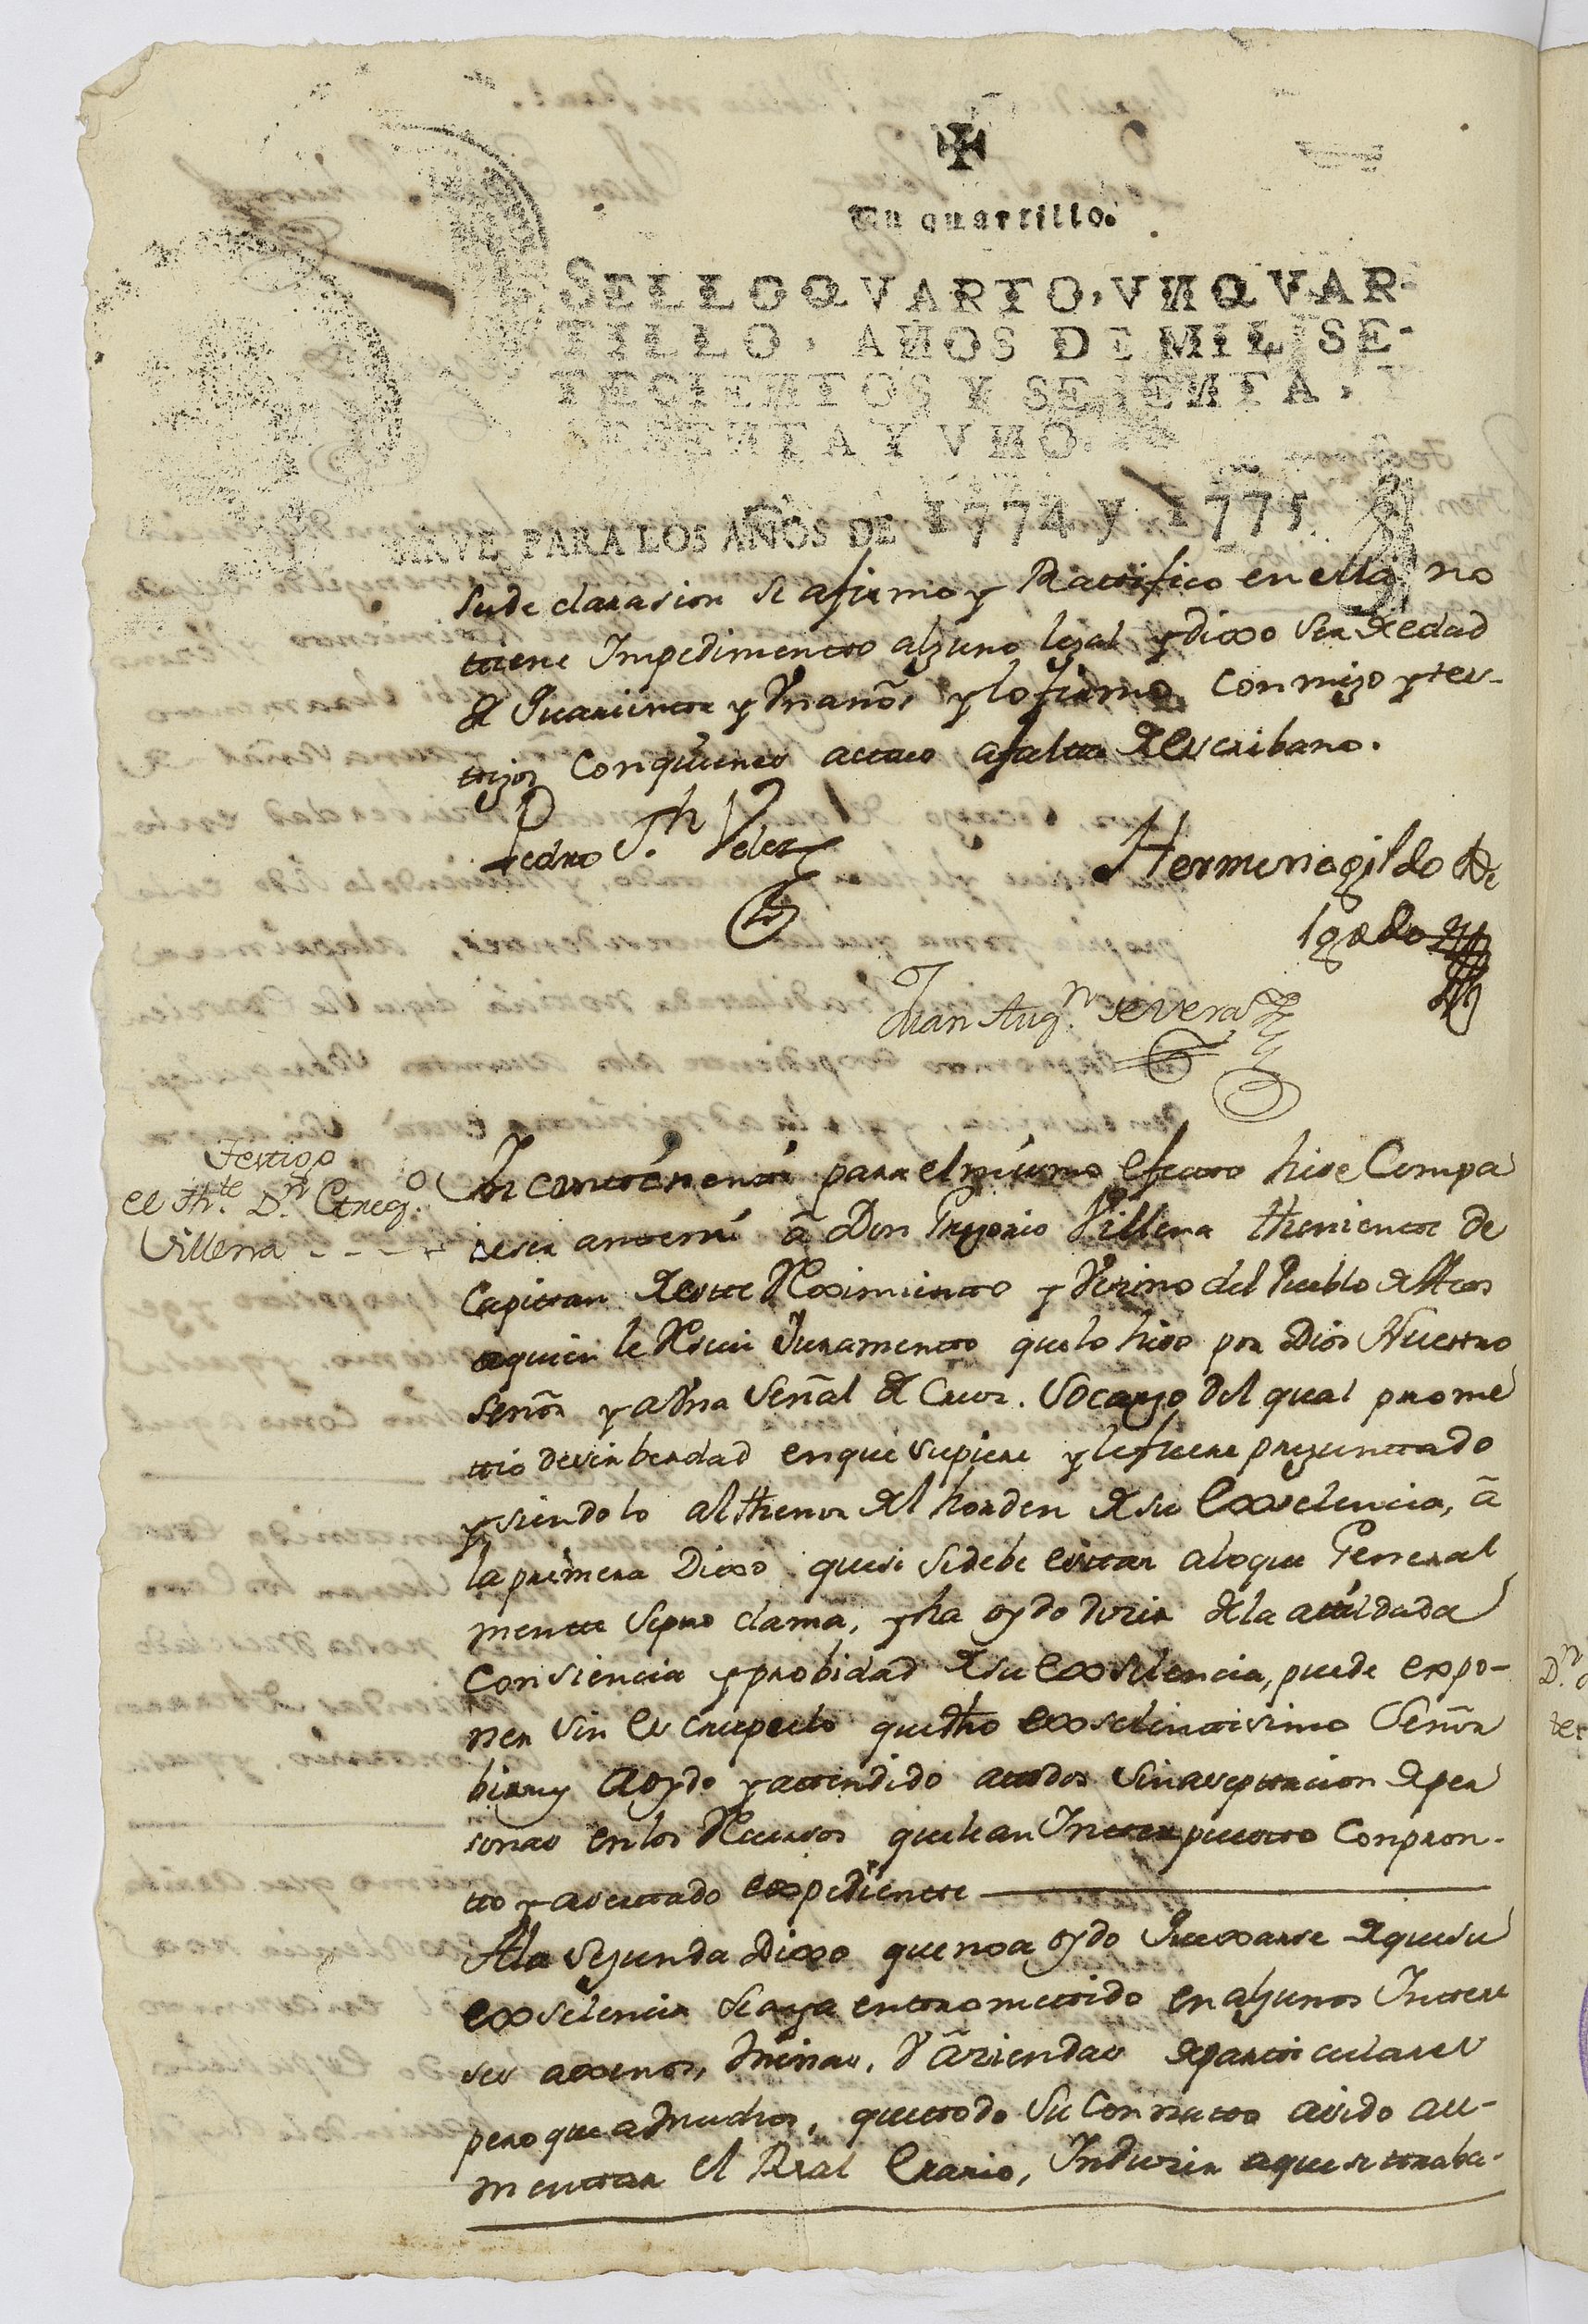 Un quartillo.
SELLO QVARTO, VN QVAR-
TILLO, AÑOS DE MIL SE-
TECIENTOS Y SETENTA, Y
SETENTA Y VNO.
SIRVE PARA LOS AÑOS DE 1774 y 1775.
su declarasion se afirmo y Ratifico en ella no
tiene Impedimento alguno legal y dixo ser de edad
de Quarienta y Un añ͂os y lo firmo conmigo y tes-
tigos con quienes actuo a falta de escribano.
Pedro Jph Velez
Hermenegildo De
lgado
Juan Augn. de Vera
Testigo
el Tht.e D.n Greg.o
Villena
In continenti para el mismo efecto hise Compa
reser ante mi â Don Gregorio Villena theniente de
Capitan de este Reximiento y Vezino del Pueblo de
a quien le Reciui Juramento que lo hiso por Dios Nuestro
señor y a Una Señal de Cruz. Socargo del qual prome
tio desir berdad en que supiere y le fuere preguntado
y siendolo al thenor del horden de su Exselencia, â
la primera Dixo que si se debe estar a lo que General
mente se pro clama, y ha oydo dezir de la
Consiencia y probidad de su Exselencia, puede expo-
ner sin escrupulo que dho exselentisimo Señor
birrey a oydo y atendido a todos sin aseptacion de per
sonas en los Recursos que han Interpuesto con pron-
to y asertado expediente
A la segunda Dixo que no a oydo Quexarse de que su
exselencia se aya entrometido en algunos Intere
ses axenos, Minas, Y aziendas de particulares
pero que a Muchos, que todo su Connato a sido au-
mentar el Real Erario, Induzir a que se traba-
D.n
tes